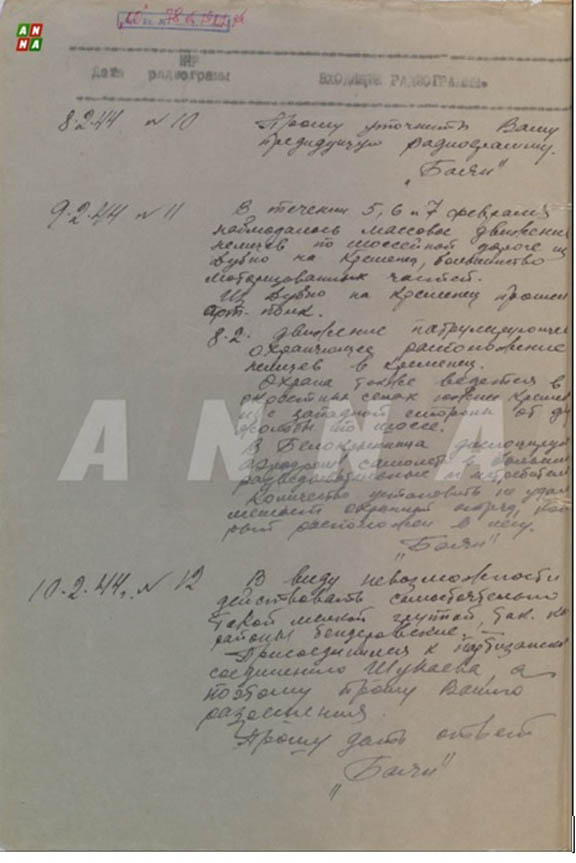 ANNA
НР
Дата радиограмы ВХОДЯЩИЕ РАДИОГРАММЫ.
8.2.44 № 10 Прошу уточнить Вашу
предидущую радиограмму.
„Боян"
9.2.44 № 11 В течении 5, 6 и 7 февраля
наблюдалось массовое движение
немцев по шоссейной дороге из
Дубно на Кременец, большинство
моторизованных частей.
Из Дубно на Кременец прошел
арт. полк.
8.2. движение патрулирующ
охраняющее расположение
немцев в Кременец.
Охрана также ведется в
окрестных селах южнее Кремен
и с западной стороны от
по шоссе.
В Белокриница
аэродром самолет
разведывательные и истребител
Количество установить не удал
мешает охранный
рый расположен в лесу.
„Боян"
10.2.44. № 12 В виду невозможности
действовать самостоятельно
такой мелкой группой, так. ка
районы бендеровские.
Присоединился к партизанск
соединению Шукаева, а
поэтому прошу Вашего
разрешения.
Прошу дать ответ
„Боян"
ANNA